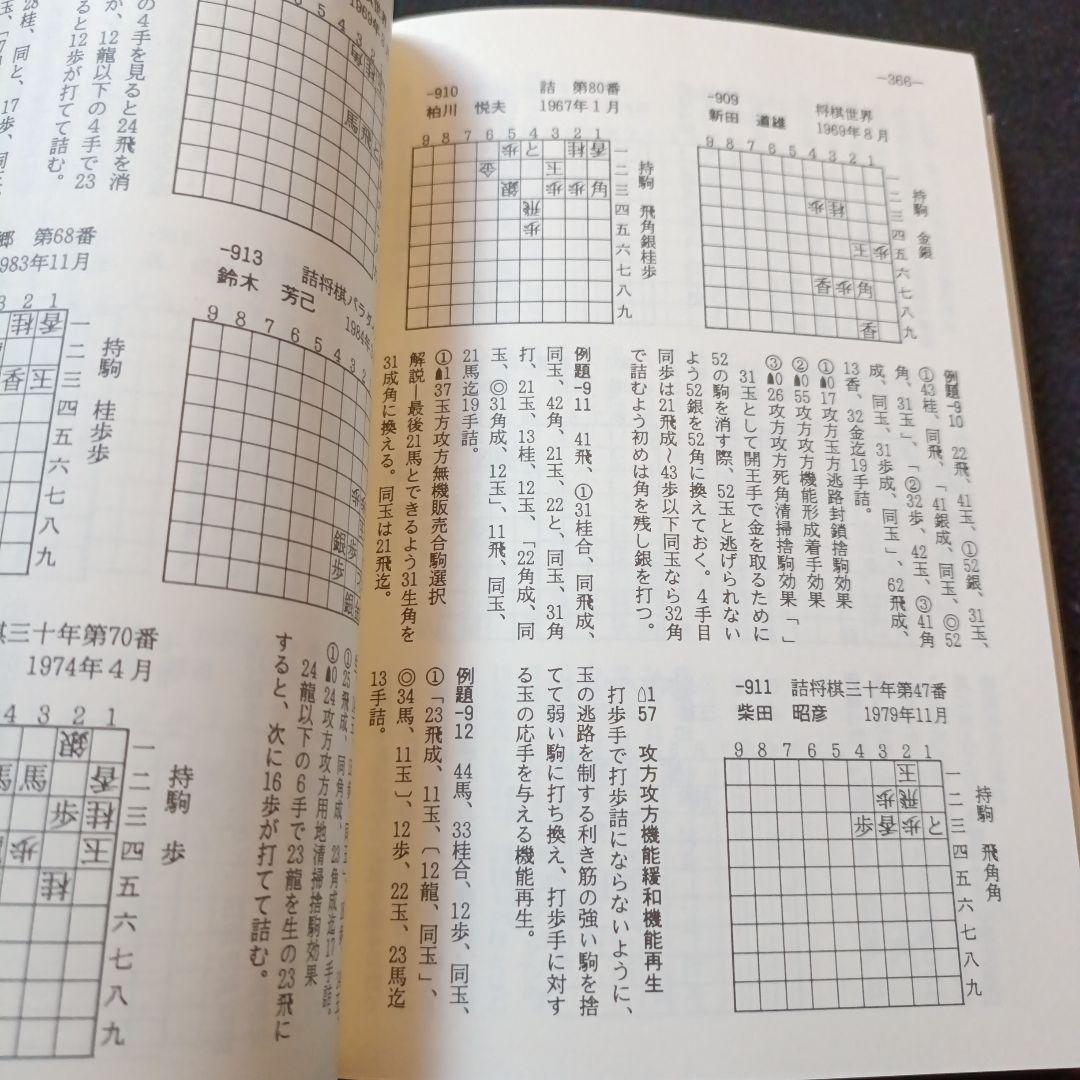 ―366―
-909 将棋世界
新田 道雄 1969年8月
9 8 7 6 5 4 3 2 1
一二三四五六七八九
持駒 金銀
歩 桂
玉 歩
香 歩 角
香
-910 詰 第80番
柏川 悦夫 1967年1月
9 8 7 6 5 4 3 2 1
一二三四五六七八九
持駒 飛角銀桂歩
歩 と 桂 香
金 玉
銀 歩 歩 角
飛
歩
例題-910 22飛、41玉、①52銀、31玉、
①43桂、同飛、「41銀成、同玉、◎52
角、31玉」、「②32歩、42玉、③41角
成、同玉、31歩成、同玉」、62飛成、
13香、32金迄19手詰。
①☗017攻方玉方逃路封鎖捨駒効果
②☗055攻方攻方機能形成着手効果「」
③☗026攻方攻方死角清掃捨駒効果
31玉として開王手で金を取るために
52の駒を消す際、52玉と逃げられない
よう52銀を52角に換えておく。4手目
同歩は21飛成～43歩以下同玉なら32角
で詰むよう初めは角を残し銀を打つ。
例題-911 41飛、①31桂合、同飛成、
同玉、42角、21玉、22と、同玉、31角
打、21玉、13桂、12玉、「22角成、同
玉、◎31角成、12玉」、11飛、同玉、
21馬迄19手詰。
①☗137玉方攻方無機販売合駒選択
解説―最後21馬とできるよう31生角を
31成角に換える。同玉は21飛迄。
-911 詰将棋三十年第47番
柴田 昭彦 1979年11月
9 8 7 6 5 4 3 2 1
一二三四五六七八九
持駒 飛角角
玉
歩 飛
歩 香 歩 と
☖157 攻方攻方機能緩和機能再生
打歩手で打歩詰にならないように、
玉の逃路を制する利き筋の強い駒を捨
てて弱い駒に打ち換え、打歩手に対す
る玉の応手を与える機能再生。
例題-912 44馬、33桂合、12歩、同玉、
①「23飛成、11玉、〔12龍、同玉」、
◎34馬、11玉〕、12歩、22玉、23馬迄
13手詰。
の4手を見ると24飛を消
か、12龍以下の4手で23
ると12歩が打てて詰む。
28桂、同と、17歩、同玉
1969年
9 8 7 6 5 4 3 2
馬 飛 と
第68番
983年11月
3 2 1
一二三四五六七八九
持駒 桂歩歩
桂 香
香 玉
-913 詰将棋パラ
鈴木 芳己 1984年
9 8 7 6 5 4 3
銀 歩
歩
銀
棋三十年第70番
1974年4月
4 3 2 1
一二三四五六七八九
持駒 歩
銀
馬 馬 香
歩 桂
歩 玉
桂
①25飛成、同角成、23角成迄17手詰。
①☗024攻方攻方用地清掃捨駒効果
24龍以下の6手で23龍を生の23飛に
すると、次に16歩が打てて詰む。